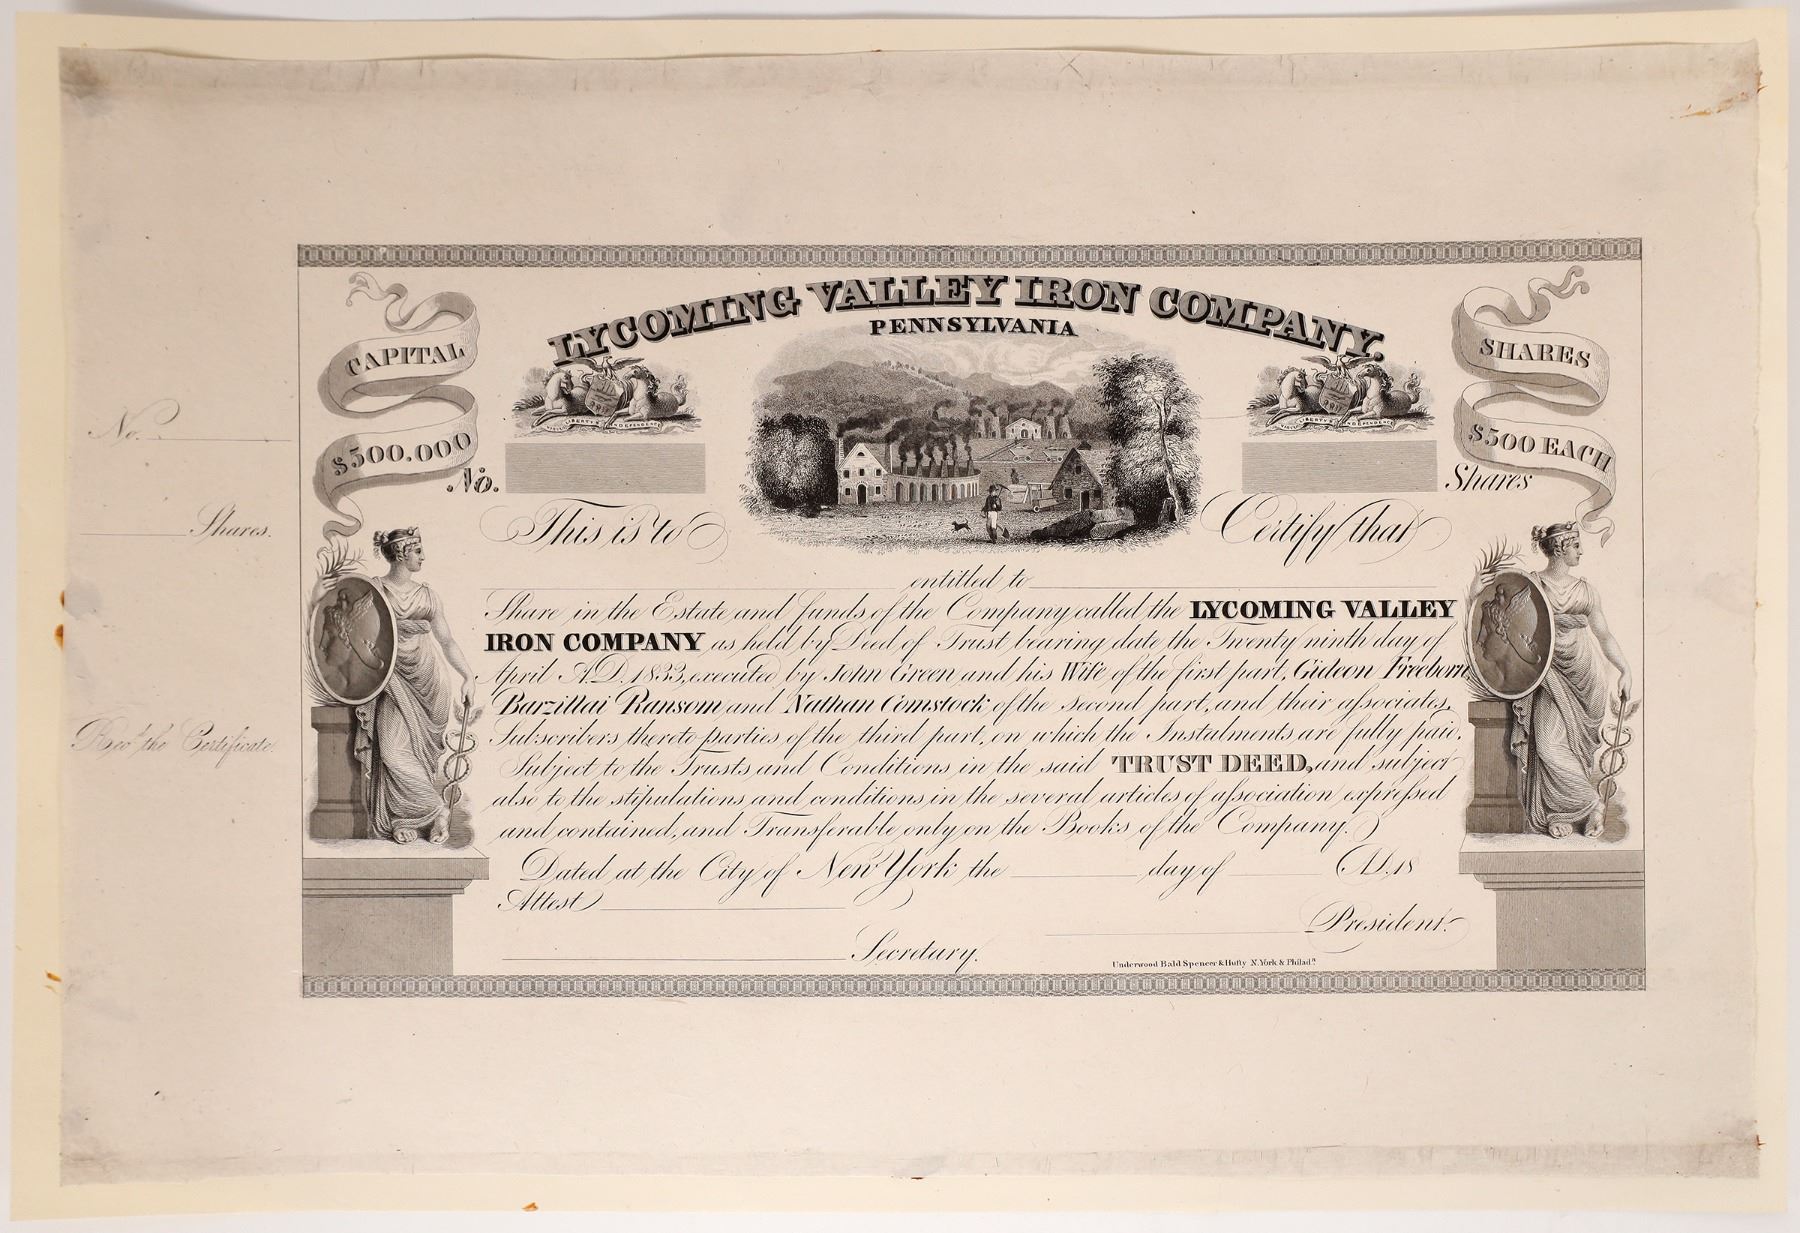 LYCOMING VALLEY IRON COMPANY.
PENNSYLVANIA
CAPITAL
$500.000
SHARES
$500 EACH
No.
Shares.
Rec.d the Certificate.
No.
Shares
This is to Certify that
entitled to
Share in the Estate and funds of the Company called the LYCOMING VALLEY
IRON COMPANY as held by Deed of Trust bearing date the Twenty ninth day of
April A.D. 1833, executed by John Green and his Wife of the first part, Gideon Freeborn,
Barzillai Ransom and Nathan Comstock of the second part, and their associates,
Subscribers thereto parties of the third part, on which the Instalments are fully paid.
Subject to the Trusts and Conditions in the said TRUST DEED, and subject
also to the stipulations and conditions in the several articles of association expressed
and contained, and Transferable only on the Books of the Company.
Dated at the City of New York the day of A.D. 18
Attest
President.
Secretary.
Underwood Bald Spencer & Hufty N. York & Philad.a